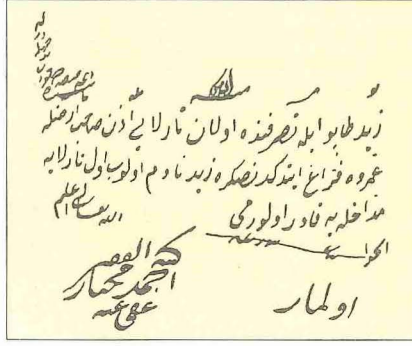 زيد طاپو ايله تصرفنده اولان تارلاسنى اذن صاحب ارضله
عمروه فراغ ايتدكدنصكره زيد نادم اولوب اول تارلايه
مداخله يه قادر اولورمى
الله تعالى اعلم
الجواب
اولماز
كتبه الفقير
احمد مختار
عفى عنه